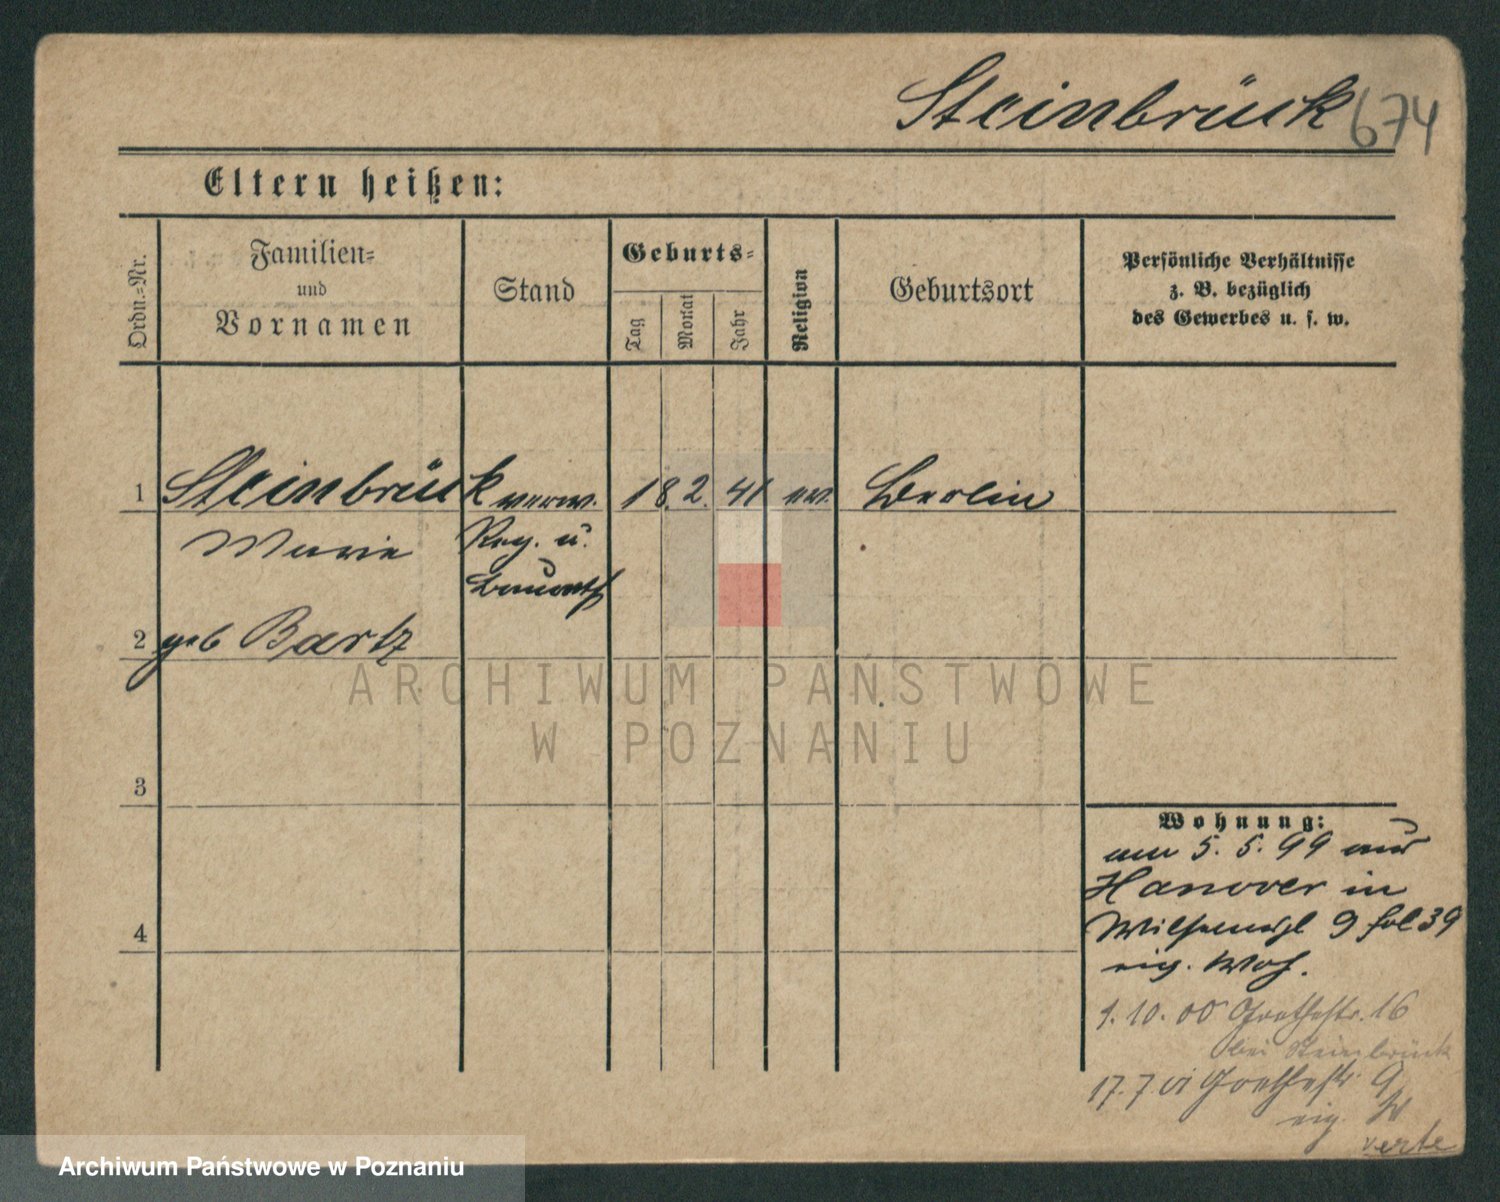 Steinbrück 674
Eltern heißen:
Ordn.-Nr.
Familien-
und
Vornamen
Stand
Geburts-
Tag
Monat
Jahr
Religion
Geburtsort
Persönliche Verhältnisse
z. B. bezüglich
des Gewerbes u. s. w.
1 Steinbrück verw. 18. 2. 41 ev. Berlin
Marie Reg. u.
Baurath
2 geb Bartz
3
4
Wohnung:
am 5. 5. 99 aus
Hanover in
9 fol 39
eig. Woh.
1. 10. 00 Goethestr. 16
bei Steinbrück
17. 7. 01 Goethestr. 9
eig. W
verte
ARCHIWUM PAŃSTWOWE
W POZNANIU
Archiwum Państwowe w Poznaniu